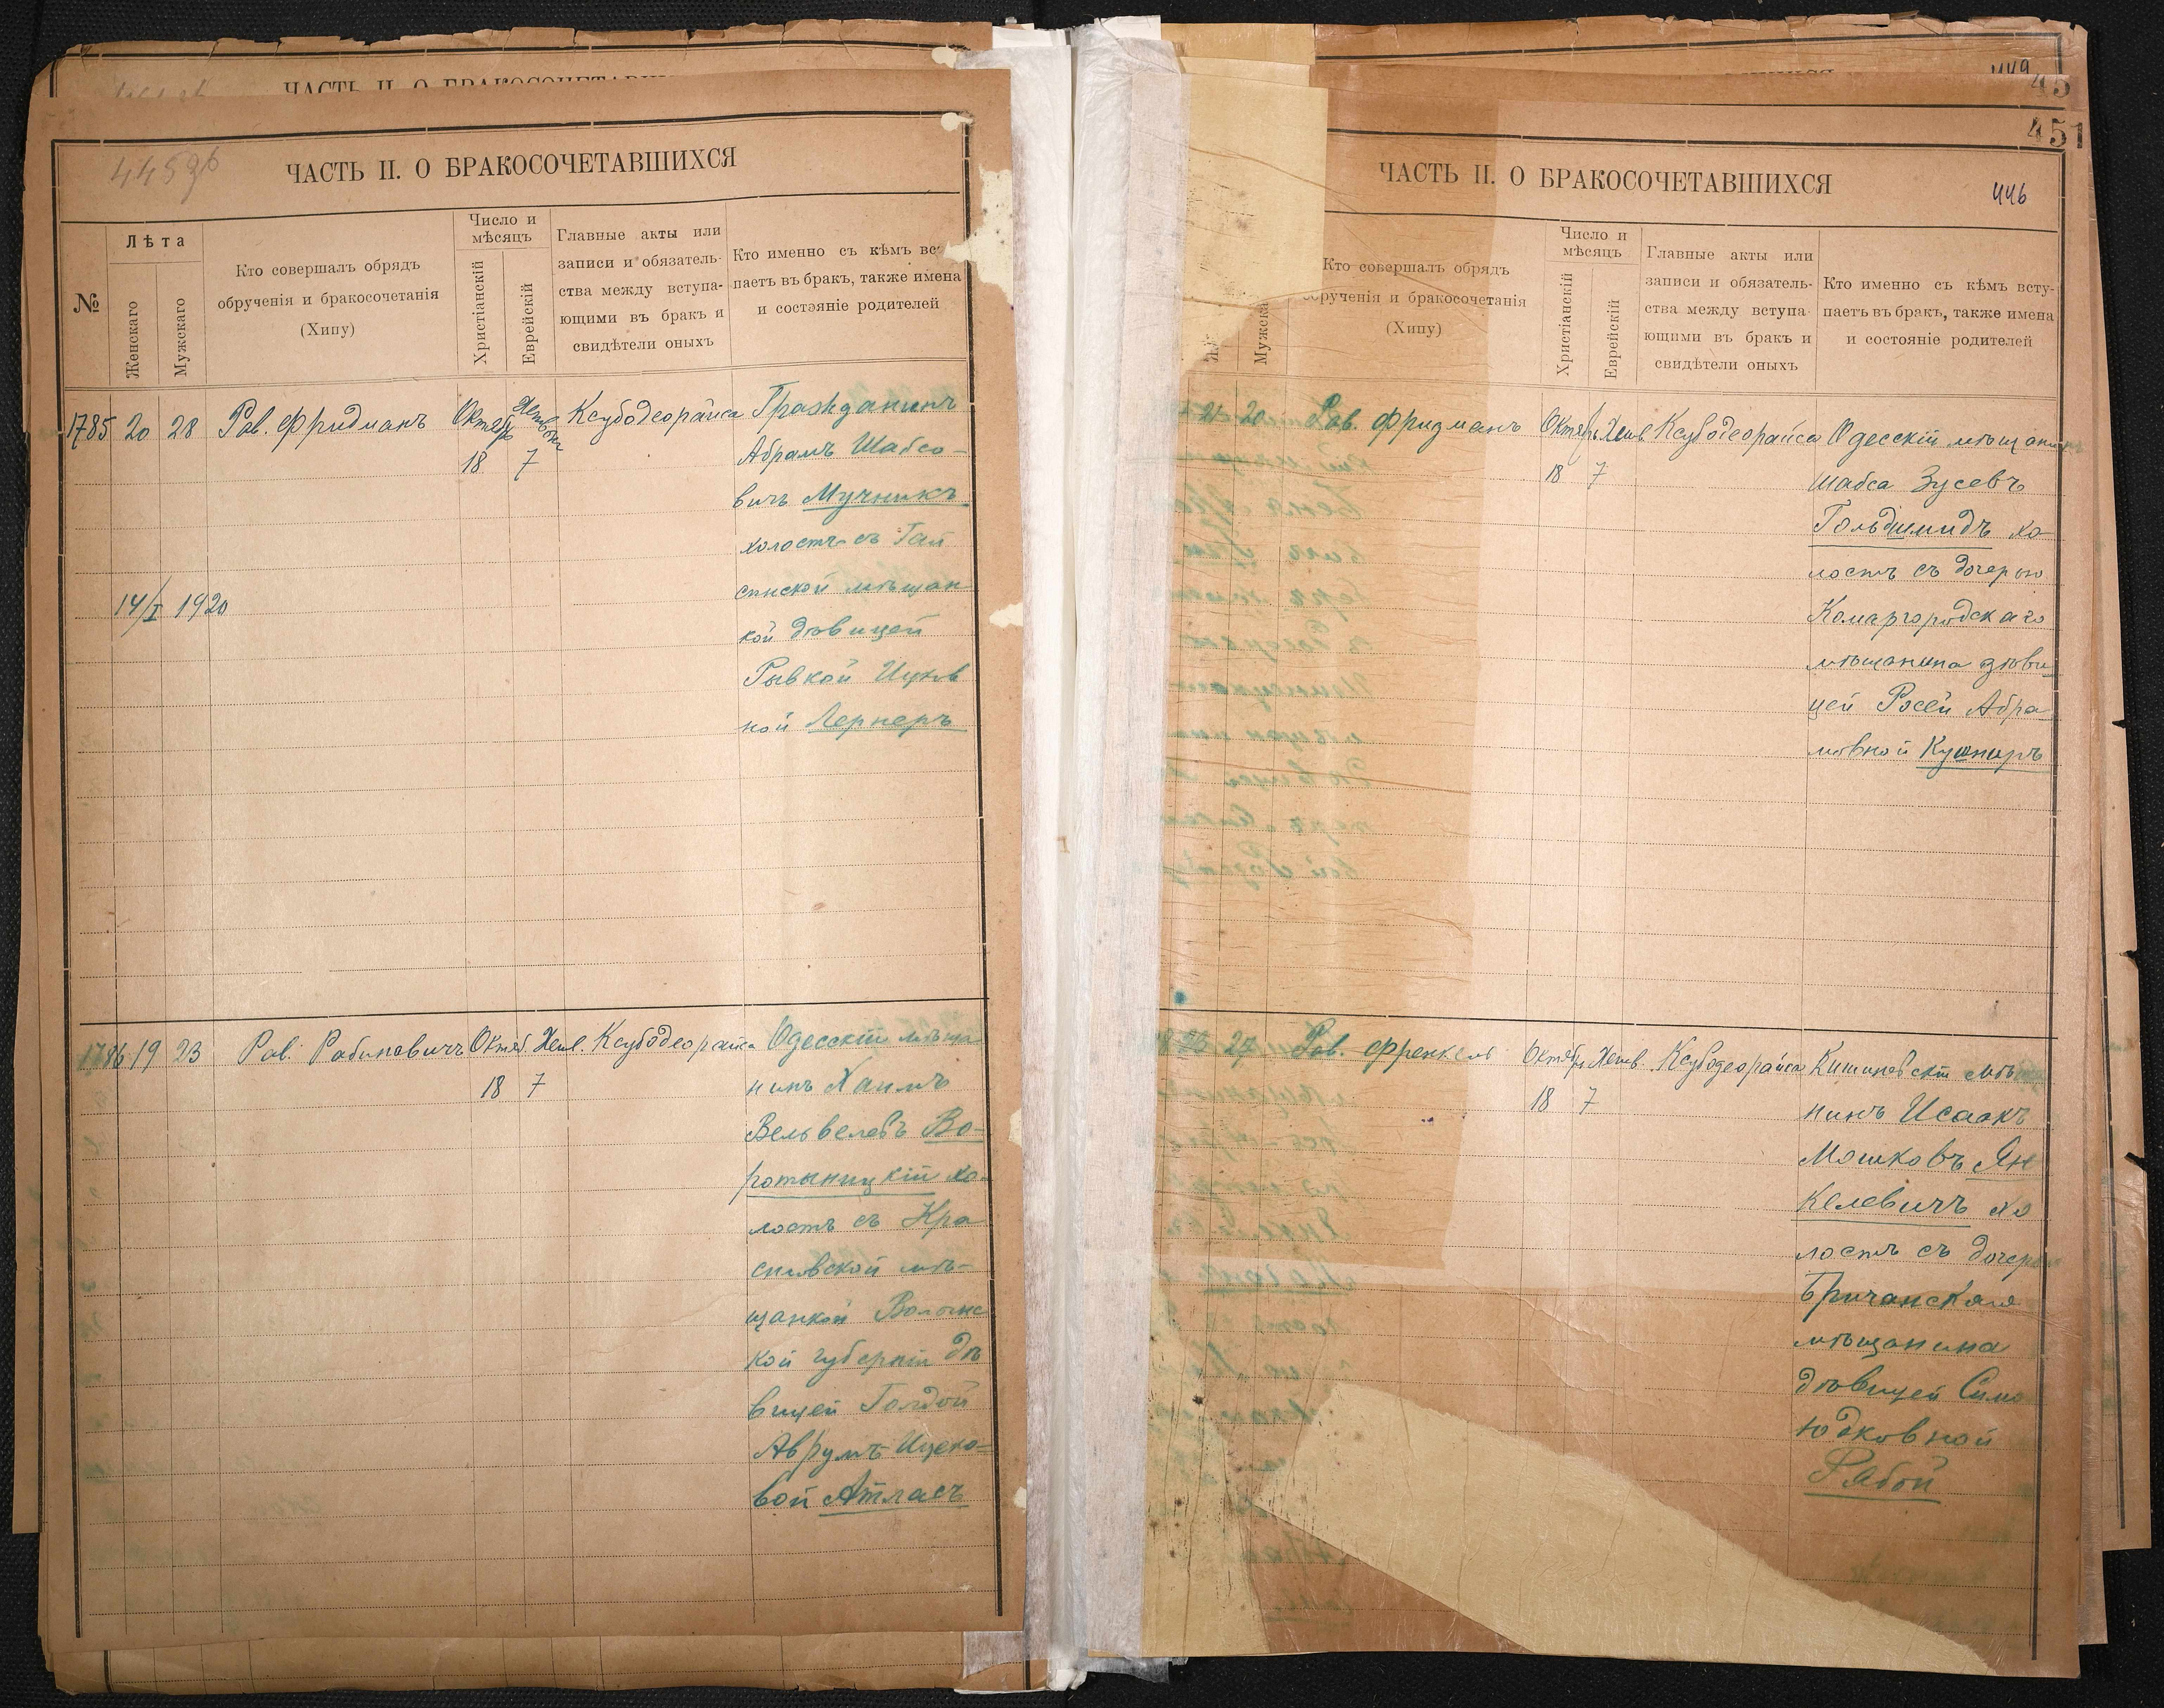 ЧАСТЬ II. О БРАКОСОЧЕТАВШИХСЯ
445об
ЧАСТЬ II. О БРАКОСОЧЕТАВШИХСЯ
№
Лѣта
Женскаго
Мужскаго
Кто совершалъ обрядъ
обрученія и бракосочетанія
(Хипу)
Число и
мѣсяцъ
Христіанскій
Еврейскій
Главные акты или
записи и обязатель-
ства между вступа-
ющими въ бракъ и
свидѣтели оныхъ
Кто именно съ кѣмъ вс
паетъ въ бракъ, также имена
и состэяніе родителей
1785 20 28 Рав. Фридманъ Октябр Хешвон Ксубодеорайса Гражданинъ
18 7
Абрамъ Шабсо-
вичъ Мучникъ
холостъ съ Гай
синской мѣщан
кой дѣвицей
Рывкой Ицков
ной Лернеръ
14/I 1920
1786 19 23 Рав. Рабиновичъ Октяб. Хешв. Ксубодеорайса Одесскій мѣща
18 7
нинъ Хаимъ
Вельвелевъ Во-
ротыницкій хо-
лостъ съ Кра
силовской мѣ-
щанкой Волынс
кой губерніи дѣ
вицей Голдой
Аврумъ-Ицко-
вой Атласъ
449
45
451
ЧАСТЬ II. О БРАКОСОЧЕТАВШИХСЯ
446
Мужска
Кто совершалъ обрядъ
рученія и бракосочетанія
(Хипу)
Число и
мѣсяцъ
Христіанскій
Еврейскій
Главные акты или
записи и обязатель-
ства между вступа-
ющими въ бракъ и
свидѣтели оныхъ
Кто именно съ кѣмъ всту-
паетъ въ бракъ, также имена
и состояніе родителей
21 20 Рав. Фридманъ Октябр Хешв. Ксубодеорайса Одесскій мѣщанинъ
18 7
Шабса Зусевъ
Гольдшмидъ хо
лостъ съ дочерью
Комаргородскаго
мѣщанина дѣви
цей Росей Абра
мовной Кушниръ
27 Рав. Френкель Октябр Хешв. Ксубодеорайса Кишиневскій мѣща
18 7
нинъ Исаакъ
Мошковъ Ян
келевичъ хо
лостъ съ дочерью
Бричанскаго
мѣщанина
дѣвицей Симо
Юдковной
Рябой